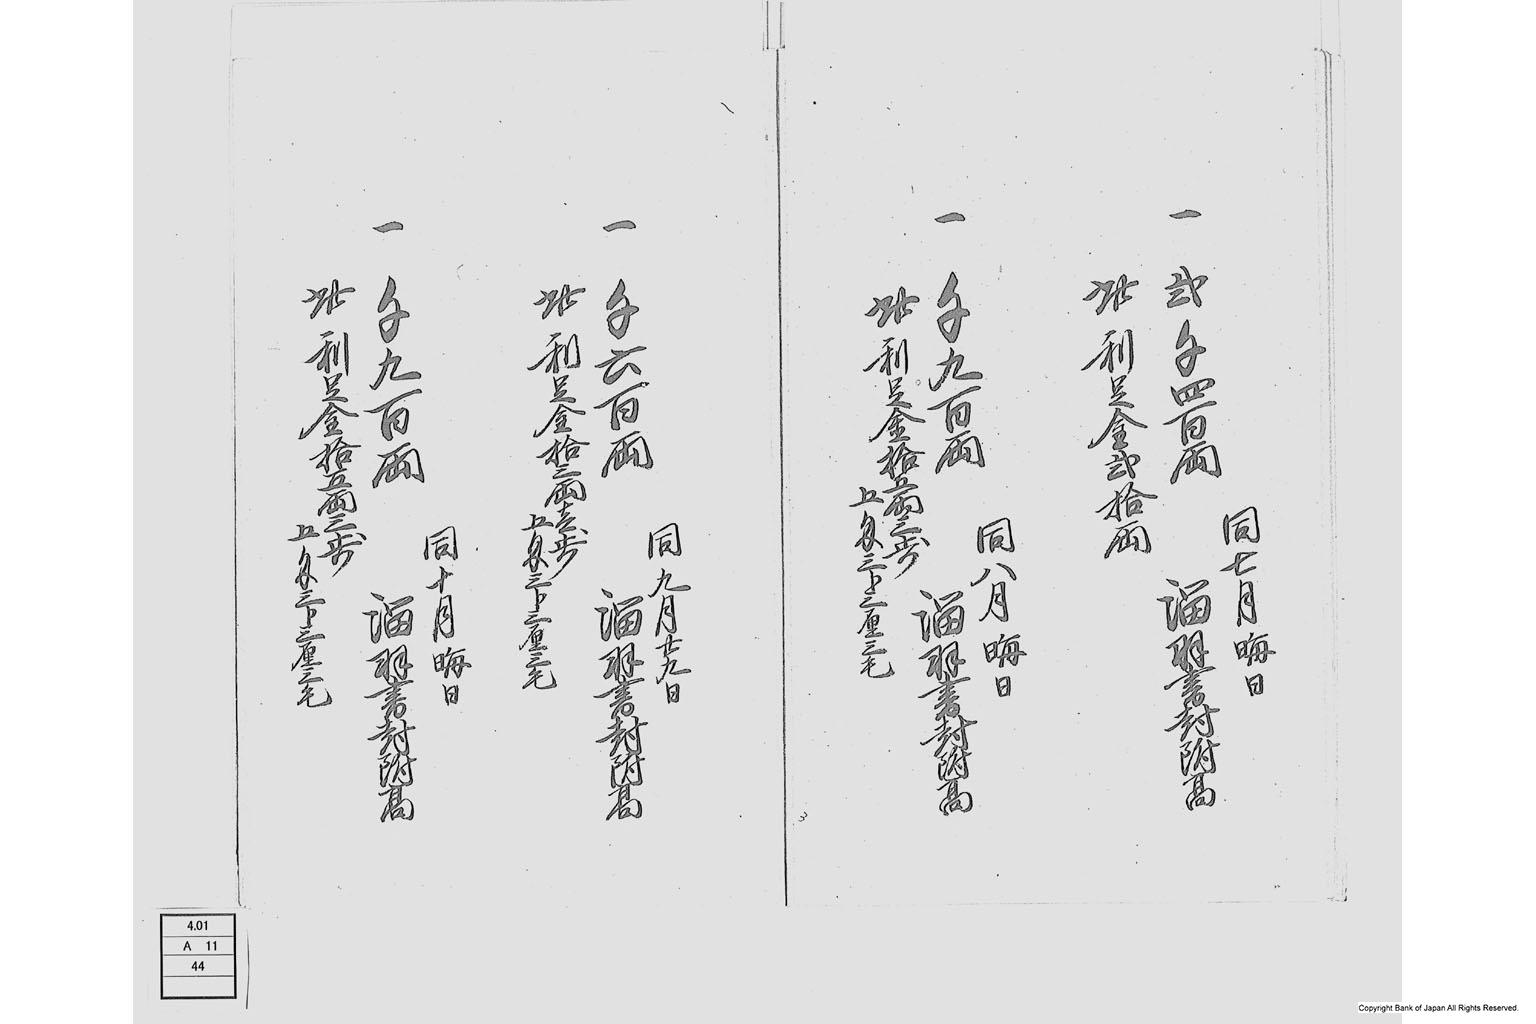 同七月晦日
一 弐千四百両 溜羽書封附高
此利足金弐拾両
同八月晦日
一 千九百両 溜羽書封附高
此利足金拾五両三歩
五匁三分三厘三毛
同九月廿九日
一 千六百両 溜羽書封附高
此利足金拾三両壱歩
五匁三分三厘三毛
同十月晦日
一 千九百両 溜羽書封附高
此利足金拾五両三歩
五匁三分三厘三毛
4.01
A 11
44
Copyright Bank of Japan All Rights Reserved.